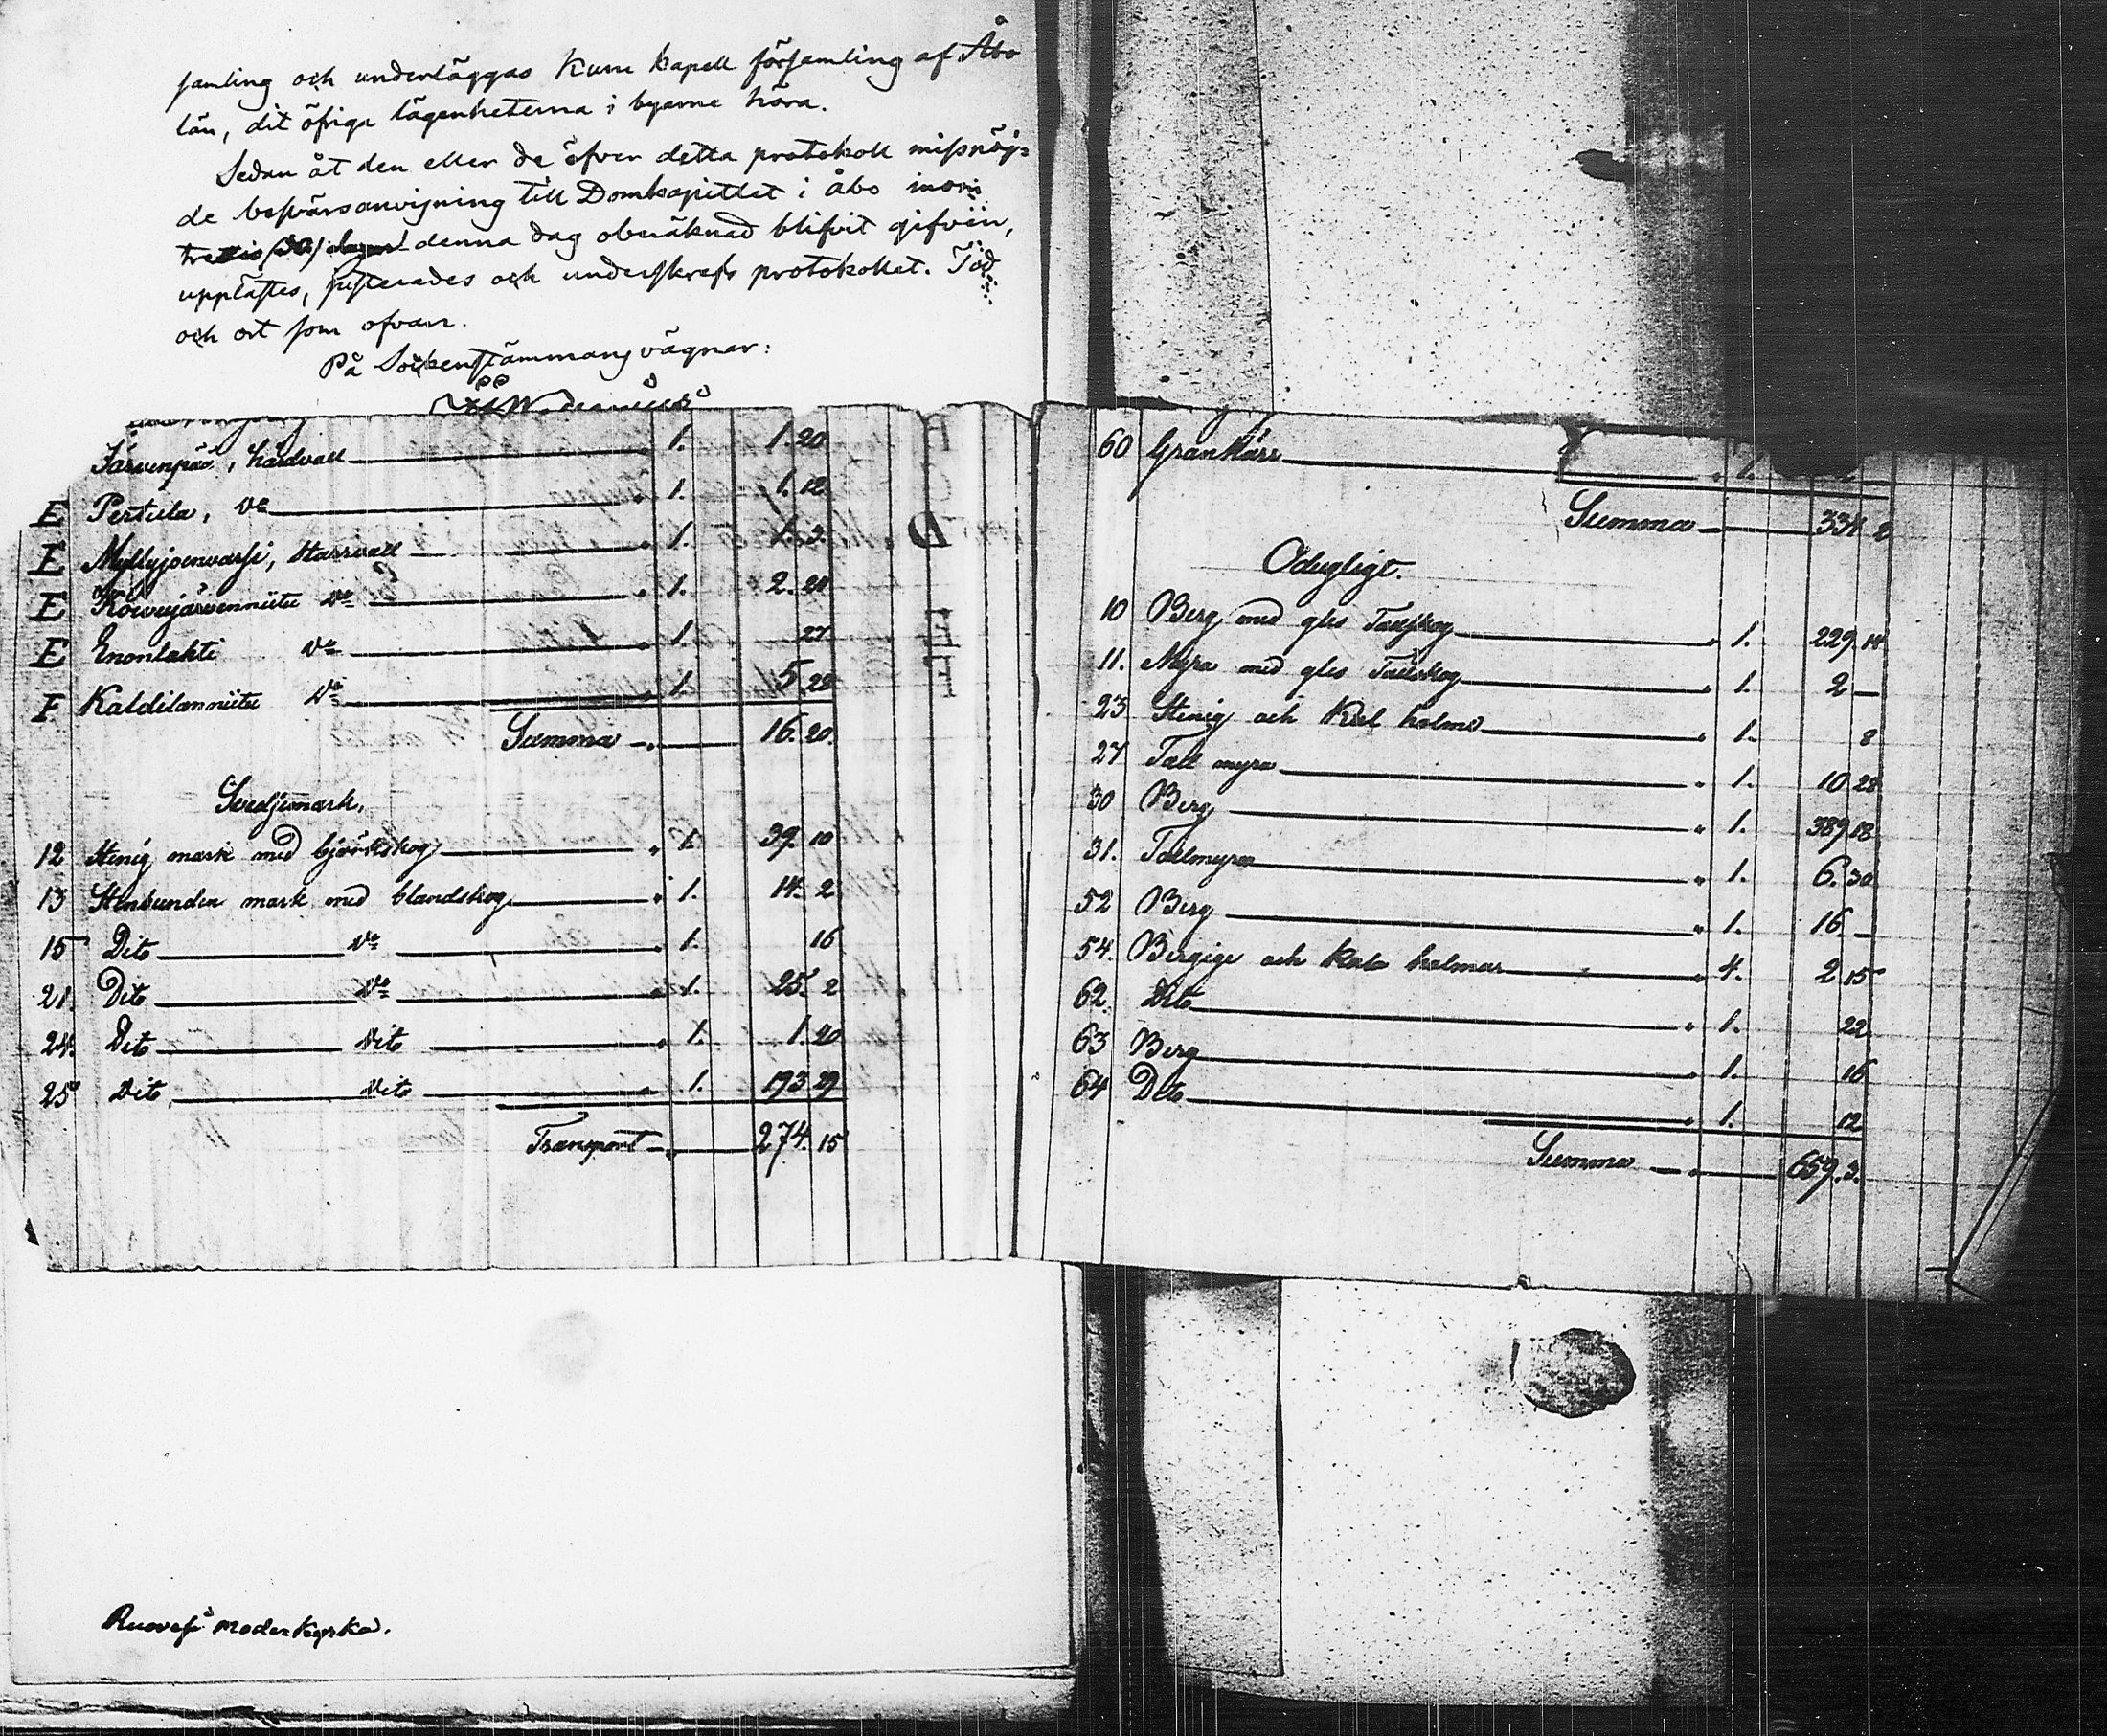 samling och underläggas Kuru kapell församling af Åbo
län, dit öfriga lägenheterna i byarne höra.
Sedan åt den eller de öfver detta protokoll missnöj=
de besvärsanvisning till Domkapitlet i Åbo inom
trettio (30) dagar denna dag oberäknad blifvit gifven,
upplästes, justerades och underskrefs protokollet. Tid
och ort som ofvan.
På Sockenstämmans vägnar:
Järvenpää, hårdvall 1. 1. 20
E Pertula, Do 1. 1. 12
E Myllyjoenvarsi, starrvall 1. 1. 3.
E Koivujärvenniitu Do 1. 2. 24
E Enonlahti Do 1. 27
F Kaldilanniitu Do 1. 5. 28
Summa 16. 20.
Svedjemark.
12 Stenig mark med björkskog 1. 39. 10
13 Stenbunden mark med blandskog 1. 14. 2
15 Dito Do 1. 16
21. Dito Do 1. 25. 2
24. Dito Dito 1. 1. 20
25 Dito Dito 1. 193 29
Transport 274. 15
60 Grankärr 1.
Summa 334 2
Odugligt.
10 Berg med gles Tallskog 1. 229. 14
11. Myra med gles Tallskog 1. 2 —
23 Stenig och Kal holme 1. 8
27 Tall myra 1. 10 28
30 Berg 1. 389 18
31. Tallmyra 1. 6. 30
52 Berg 1. 16. —
54. Bergige och Kala holmar 4. 2 15
62. Dito 1. 22
63 Berg 1. 16
64 Dito 1. 12
Summa 659. 3.
Ruovesi moderkyrka.